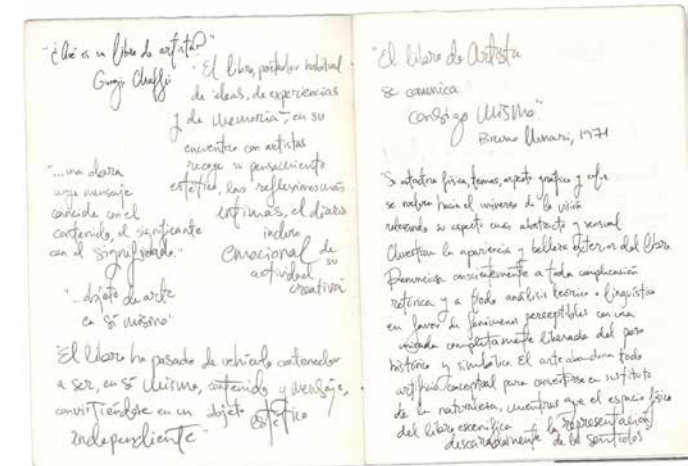 "¿Qué es un libro de artista?"
Giorgio Maffei
"El libro, portador habitual
de ideas, de experiencias
y de memoria", en su
encuentro con artistas
recoge su pensamiento
estético, las reflexiones más
íntimas, el diario
incluso
emocional de
su
actividad
creativa
"...una obra
cuyo mensaje
coincide con el
contenido, el significante
con el significado."
"...objeto de arte
en sí mismo"
"El libro ha pasado de vehículo contenedor
a ser, en sí mismo, contenido y mensaje,
convirtiéndose en un objeto
estético
independiente"
"El libro de Artista
se comunica
consigo mismo"
Bruno Munari, 1971
"Su estructura física, temas, aspecto gráfico y
se vuelven hacia el universo de la visión
su aspecto más abstracto y sensual
Muestran la apariencia y belleza exterior del libro
Renuncian conscientemente a toda complicación
retórica y a todo análisis teórico o lingüístico
en favor de fenómenos perceptibles con una
mirada completamente liberada del peso
histórico y simbólico. El arte abandona todo
artificio conceptual para convertirse en sustituto
de la naturaleza, mientras que el espacio físico
del libro escenifica la representación
descaradamente de los sentidos"